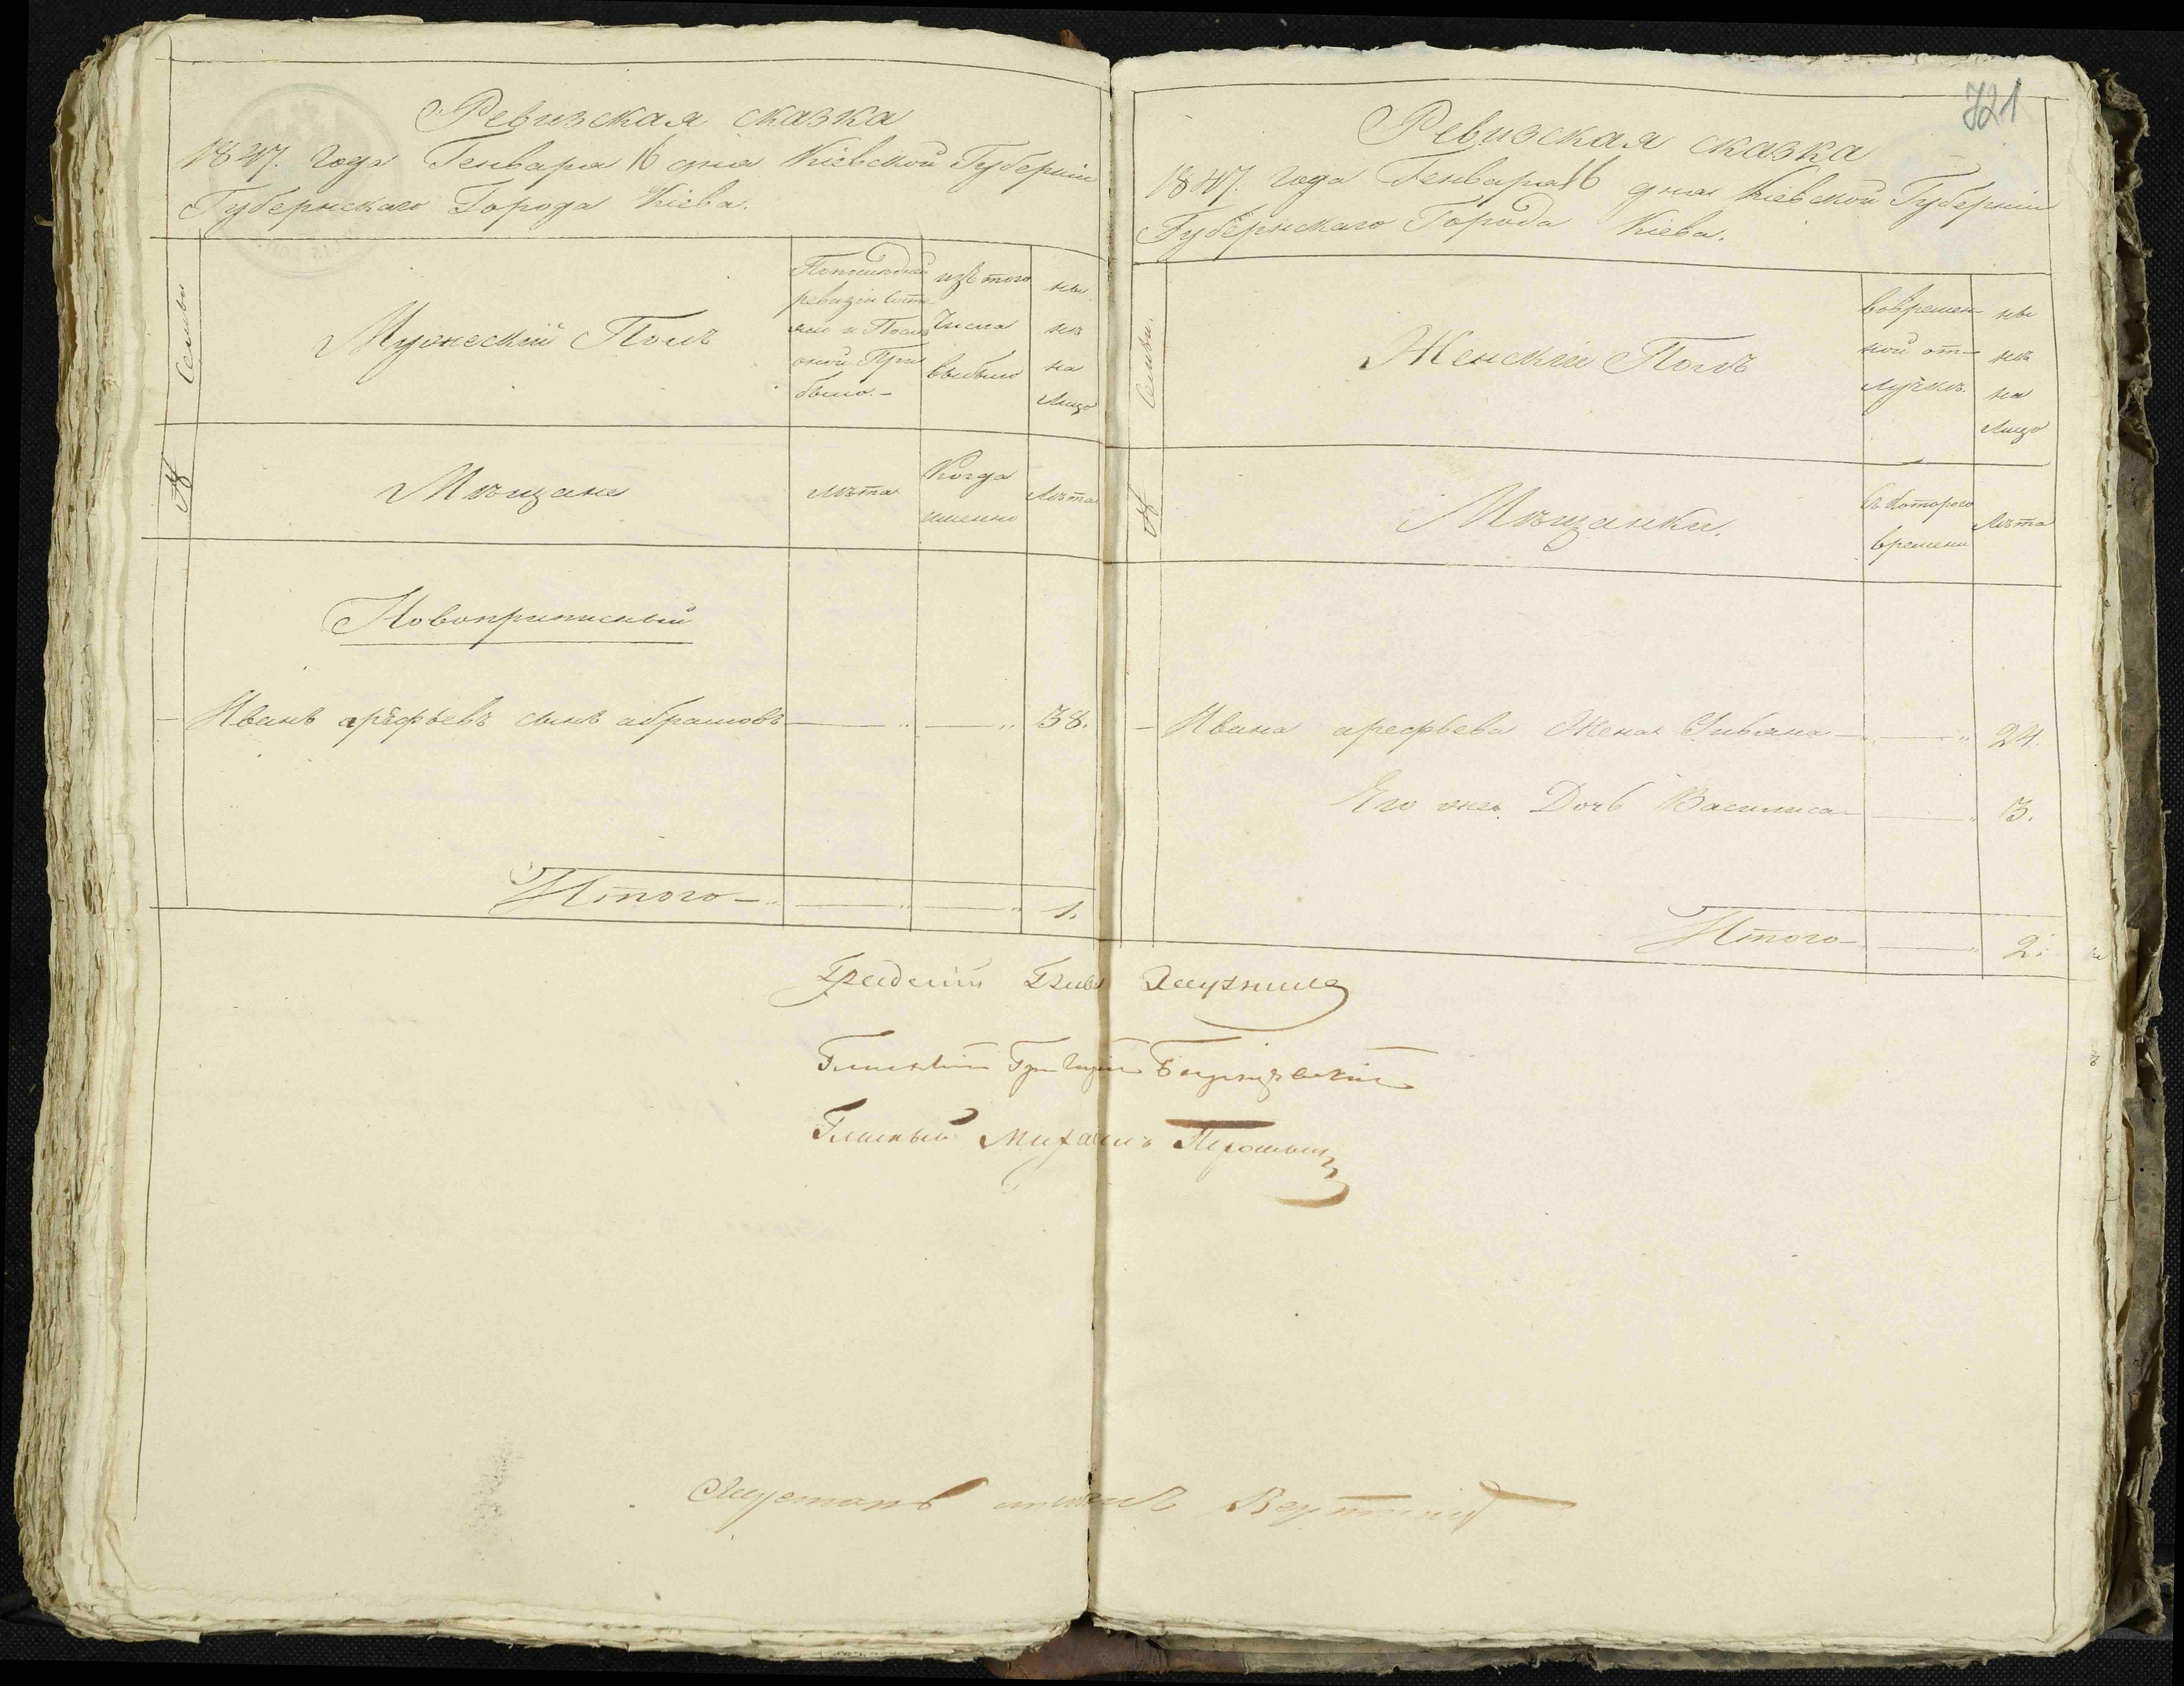 Ревизская сказка
1847. года Генваря 16 дня Кіевской Губерніи
Губернскаго Города Кіева.
Семьи
Мужескій Полъ
По последней
ревизіи состо
яло и После
оной При
было.-
изъ того
Числа
выбыло
ны
нѣ
на
Лицо
№
Мѣщане
лѣта
Когда
именно
Лѣта
Новоприписный
Иванъ арефьевъ сынъ абрамовъ 38.
Итого 1.
721
Ревизская сказка
1847. года Генваря 16 дня Кіевской Губерніи
Губернскаго Города Кіева.
Семьи.
Женскій Полъ
Вовремен-
ной от-
лучкѣ.
ны
нѣ
на
Лицо
№
Мѣщанки.
Съ Которого
времени
Лѣта
Ивана арефьева Жена 24.
Его же Дочь Василиса 3.
Итого 2.
Градскій Глава
Гласный Григорій
Гласный Михаилъ